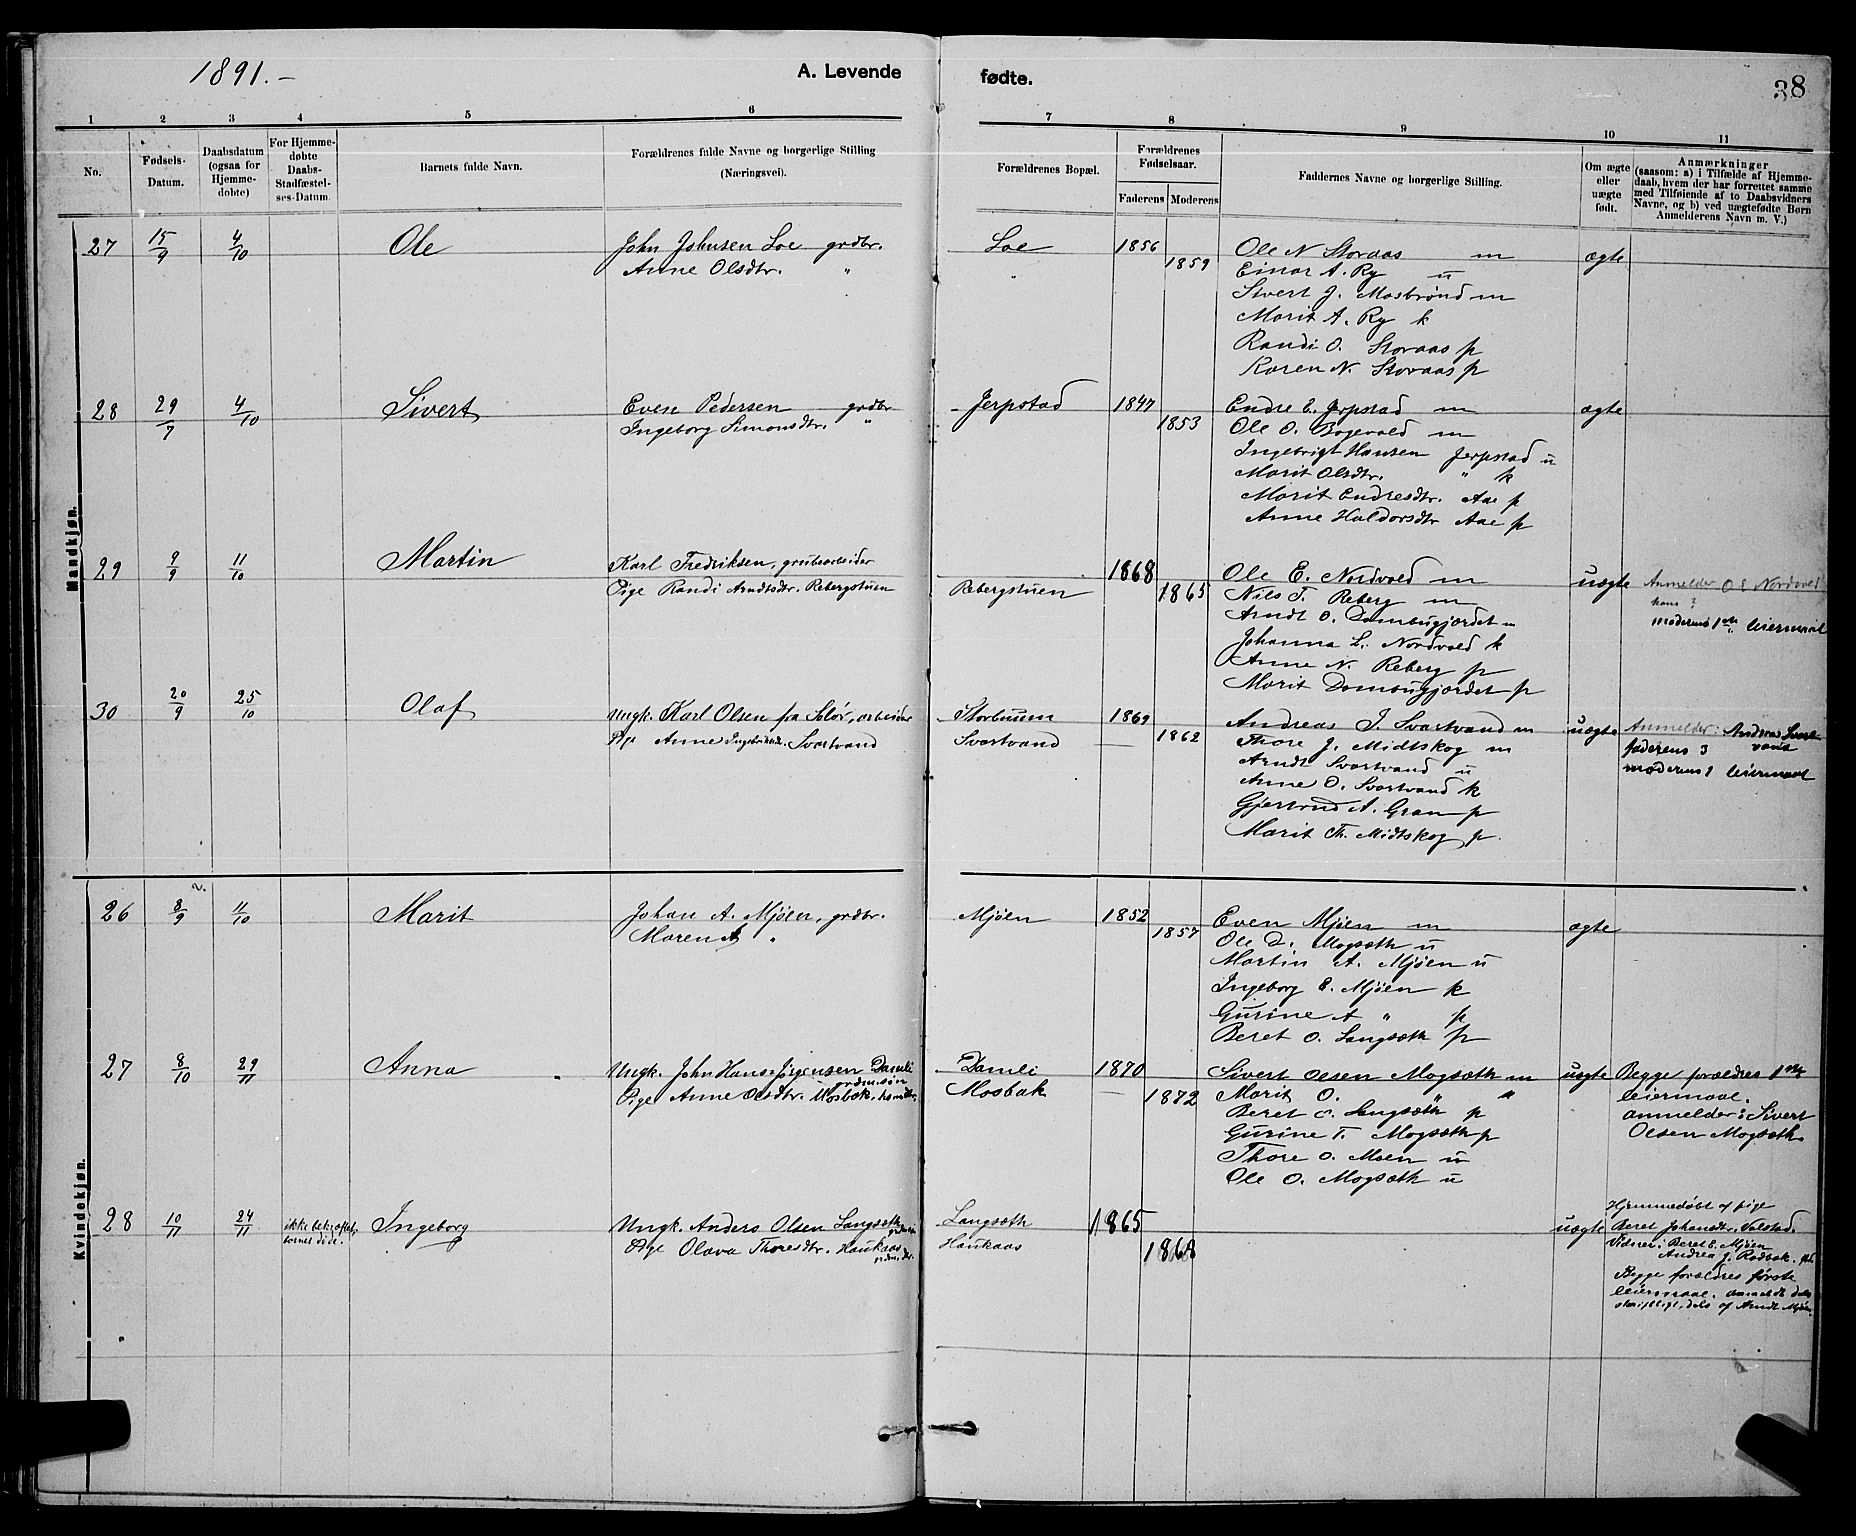 1891.-
A. Levende
fødte.
38
1 2 3 4 5 6 7 8 9 10 11
No.
Fødsels-
Datum.
Daabsdatum
(ogsaa for
Hjemme-
døbte)
For Hjemme-
døbte
Daabs-
Stadfæstel-
ses-Datum.
Barnets fulde Navn.
Forældrenes fulde Navne og borgerlige Stilling
(Næringsvei).
Forældrenes Bopæl.
Forældrenes
Fødselsaar.
Faderens Moderens
Faddernes Navne og borgerlige Stilling.
Om ægte
eller
uægte
født.
Anmærkninger
(saasom: a) i Tilfælde af Hjemme-
daab, hvem der har forrettet samme
med Tilføiende af to Daabsvidners
Navne, og b) ved uægtefødte Børn
Anmelderens Navn m. V.)
Mandkjøn.
27 15/9 4/10 Ole
John Johnsen Loe grdbr.
Anne Olsdtr. "
Loe
"
1856
1859
Ole N Storaas m
Einar A. Ry u
Sivert J. Mosbrønd m
Marit A. Ry k
Randi O. Storaas p
Karen N. Storaas p
ægte
28 29/7 4/10 Sivert
Even Pedersen grdbr
Ingeborg Simonsdtr. "
Jerpstad
1847
1853
Endre E. Jerpstad m
Ole O. Bogevold m
Ingebrigt Hansen Jerpstad u
Marit Olsdtr. " k
Marit Endresdtr. Aae p
Anne Haldorsdtr Aae p
ægte
29 9/9 11/10 Martin
Karl Fredriksen, grubearbeider
Pige Randi Arndtsdtr. Rebergstuen
Rebergstuen
1868
1865
Ole E. Nordvold m
Nils T. Reberg m
Arndt O. Dombugjerdet m
Johanna L. Nordvold k
Anne N. Reberg p
Marit Dombugjerdet p
uægte
Anmelder O E Nordvold
hans ?
moderens 1ste leiermaal
30 20/9 25/10 Olaf
Ungk. Karl Olsen fra Solør, arbeider
Pige Anne Ingebrigtsdt. Svartvand
Storhuum
Svartvand
1869
1862
Andreas J. Svartvand m
Thore J. Midtskog m
Arndt Svartvand u
Anne O. Svartvand k
Gjertrud A. Gran p
Marit Th. Midtskog p.
uægte
Anmelder: Andreas Svart-
vand
faderens 3
moderens 1 leiermaal
Kvindekjøn.
26 8/9 11/10 Marit
Johan A. Mjøen, grdbr.
Maren A "
Mjøen
1852
1857
Even Mjøen m
Ole D. Mogsæth u
Martin A. Mjøen u
Ingeborg E. Mjøen k
Gurine A " p
Beret O. Langsæth p
ægte
27 8/10 29/11 Anna
Ungk. John Hans Jørgensen Damli
grdm.søn
Pige Anne Olsdtr. Mosbak,
Damli
Mosbak
1870
1872
Sivert Olsen Mogsæth m
Marit O. " "
Beret O. Langsæth p
Gurine T. Mogsæth p
Thore O. Moen u
Ole O. Mogsæth u
uægte
Begge forældres 1ste
leiermaal.
anmelder: Sivert
Olsen Mogsæth
28 10/11 24/11
ikke bekræftet,
barnet død.
Ingeborg
Ungk. Anders Olsen Langsæth
Pige Olava Thoresdtr. Haukaas
Langsæth
Haukaas
1865
1868
uægte
Hjemmedøbt af pige
Beret Johansdt. Volstad.
Vidner: Beret E. Mjøen
Andrea J. Rødbak.
Begge forældres første
leiermaal. anmeldt dels
skriftligt, dels af Arndt Mjøen